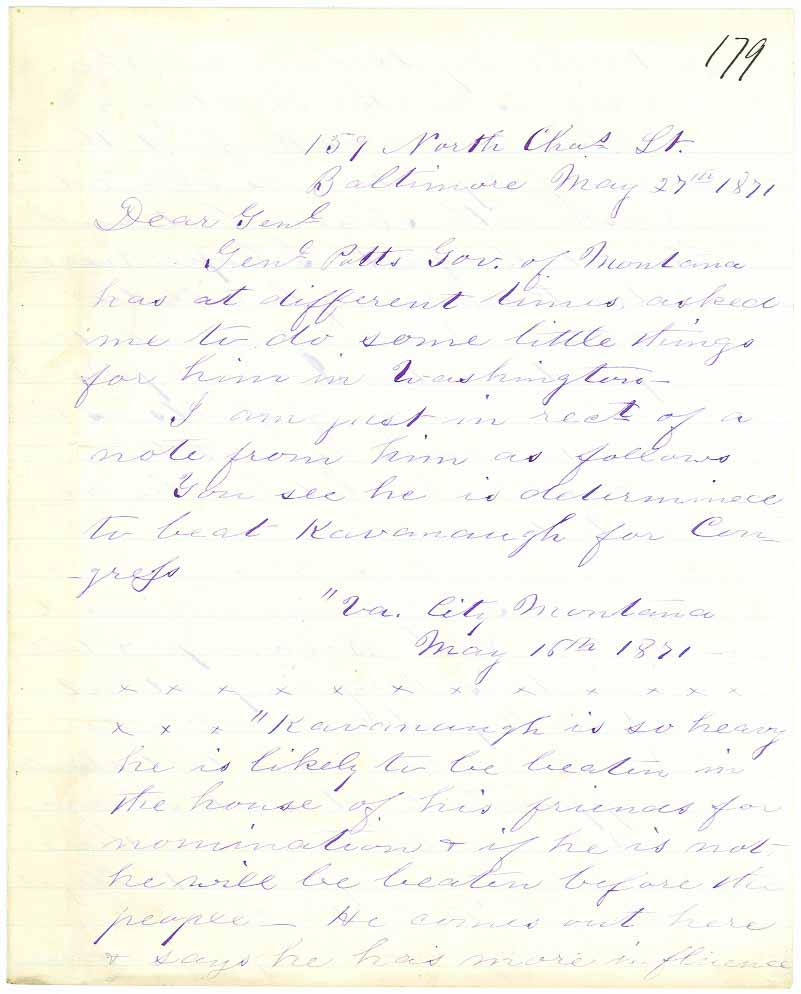 179
159 North Chas St.
Baltimore May 27th 1871
Dear Genl
Genl. Potts Gov. of Montana
has at different times asked
me to do some little things
for him in Washington—
I am just in rect of a
note from him as follows
You see he is determined
to beat Kavanaugh for Con-
-gress
"Va. City Montana
May 16th 1871—
x x x x x x x x x x x x
x x x "Kavanaugh is so heavy
he is likely to be beaten in
the house of his friends for
nomination & if he is not
he will be beaten before the
people— He comes out here
& says he has more influence